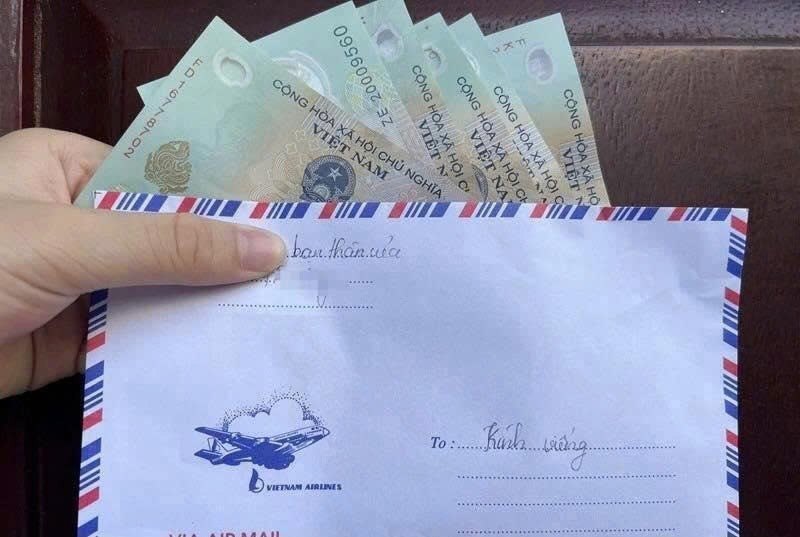 FD16778702
CỘNG HÒA XÃ HỘI CHỦ NGHĨA
VIỆT NAM
ZE 20009560
CỘNG HÒA XÃ HỘI
VIỆT
CỘNG HÒA XÃ HỘI
VIỆT
CỘNG HÒA XÃ HỘI
FK 2
CỘNG HÒA XÃ HỘI
VIỆT
bạn thân của
VIETNAM AIRLINES
To : Kính viếng
VIA AIR MAIL